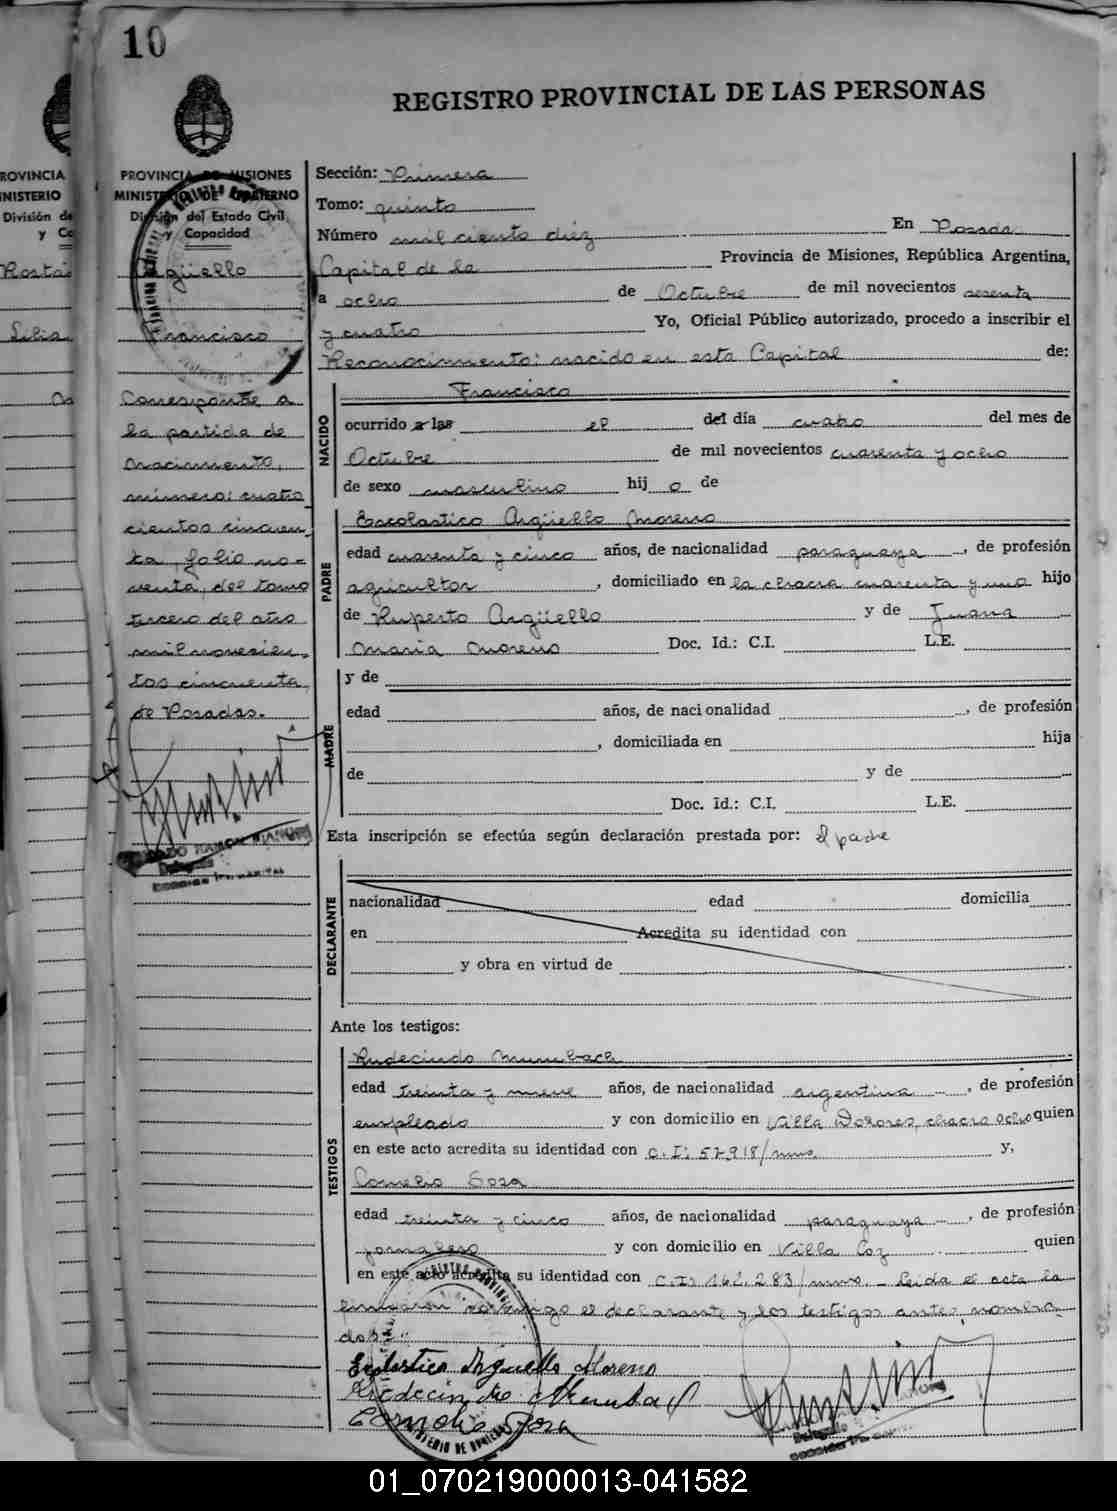 10
REGISTRO PROVINCIAL DE LAS PERSONAS
ROVINCIA
NISTERIO
División de
y Ca
PROVINCIA DE MISIONES
MINISTERIO DE GOBIERNO
División del Estado Civil
y Capacidad
Argüello
Francisco
Corresponde a
la partida de
nacimiento,
número: cuatro
cientos cincuen
ta, folio no-
venta, del tomo
tercero del año
mil novecien-
tos cincuenta,
de Posadas.
Sección: Primera
Tomo: quinto
Número mil ciento diez En Posadas
Capital de la Provincia de Misiones, República Argentina,
a ocho de Octubre de mil novecientos sesenta
y cuatro Yo, Oficial Público autorizado, procedo a inscribir el
Reconocimiento: nacido en esta Capital de:
NACIDO
Francisco
ocurrido a las el del día cuatro del mes de
Octubre de mil novecientos cuarenta y ocho
de sexo masculino hij o de
PADRE
Escolastico Argüello Moreno
edad cuarenta y cinco años, de nacionalidad paraguaya, de profesión
agricultor, domiciliado en la chacra cuarenta y uno hijo
de Ruperto Argüello y de Juana
Maria Moreno Doc. Id.: C.I. L.E.
MADRE
y de
edad años, de nacionalidad, de profesión
, domiciliada en hija
de y de
Doc. Id.: C.I. L.E.
Esta inscripción se efectúa según declaración prestada por: El padre
DECLARANTE
nacionalidad edad domicilia
en Acredita su identidad con
y obra en virtud de
Ante los testigos:
TESTIGOS
Rudecindo
edad treinta y nueve años, de nacionalidad argentina, de profesión
empleado y con domicilio en Villa Dolores, chacra ocho quien
en este acto acredita su identidad con C.I: 57918/mns. y,
Cornelio Sosa
edad treinta y cinco años, de nacionalidad paraguaya, de profesión
jornalero y con domicilio en Villa Coz quien
en este acto acredita su identidad con C.I: 162.283/mns. - Leida el acta la
firmaron conmigo el declarante y los testigos antes nombra-
dos.-
Escolastico Arguello Moreno
Cornelio Sosa
01_070219000013-041582